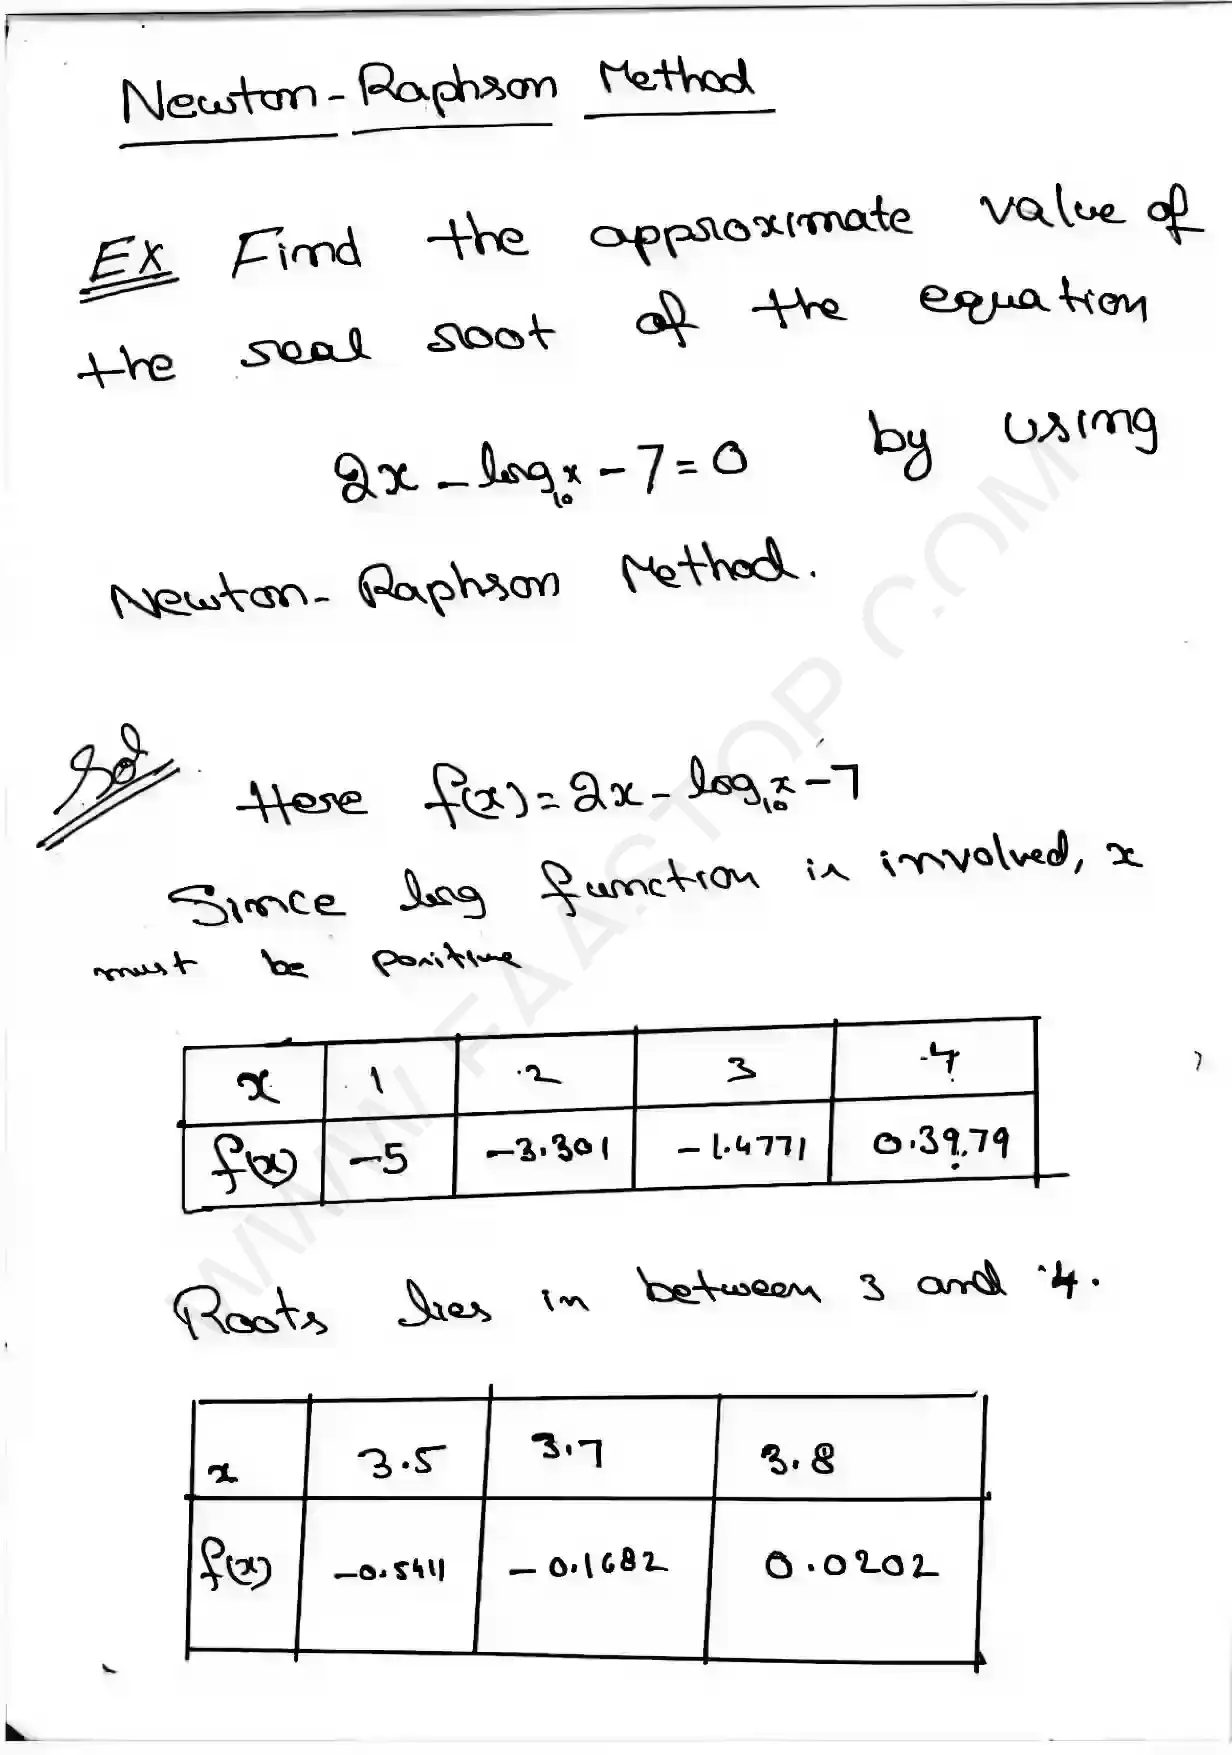 Newton-Raphson Method
Ex Find the approximate value of
the real root of the equation
2x - log₁₀x - 7 = 0 by using
Newton-Raphson Method.
Sol Here f(x) = 2x - log₁₀x - 7
Since log function is involved, x
must be positive
x 1 2 3 4
f(x) -5 -3.301 -1.4771 0.3979
Roots lies in between 3 and 4.
x 3.5 3.7 3.8
f(x) -0.5441 -0.1682 0.0202
WWW.FAASTOP.COM